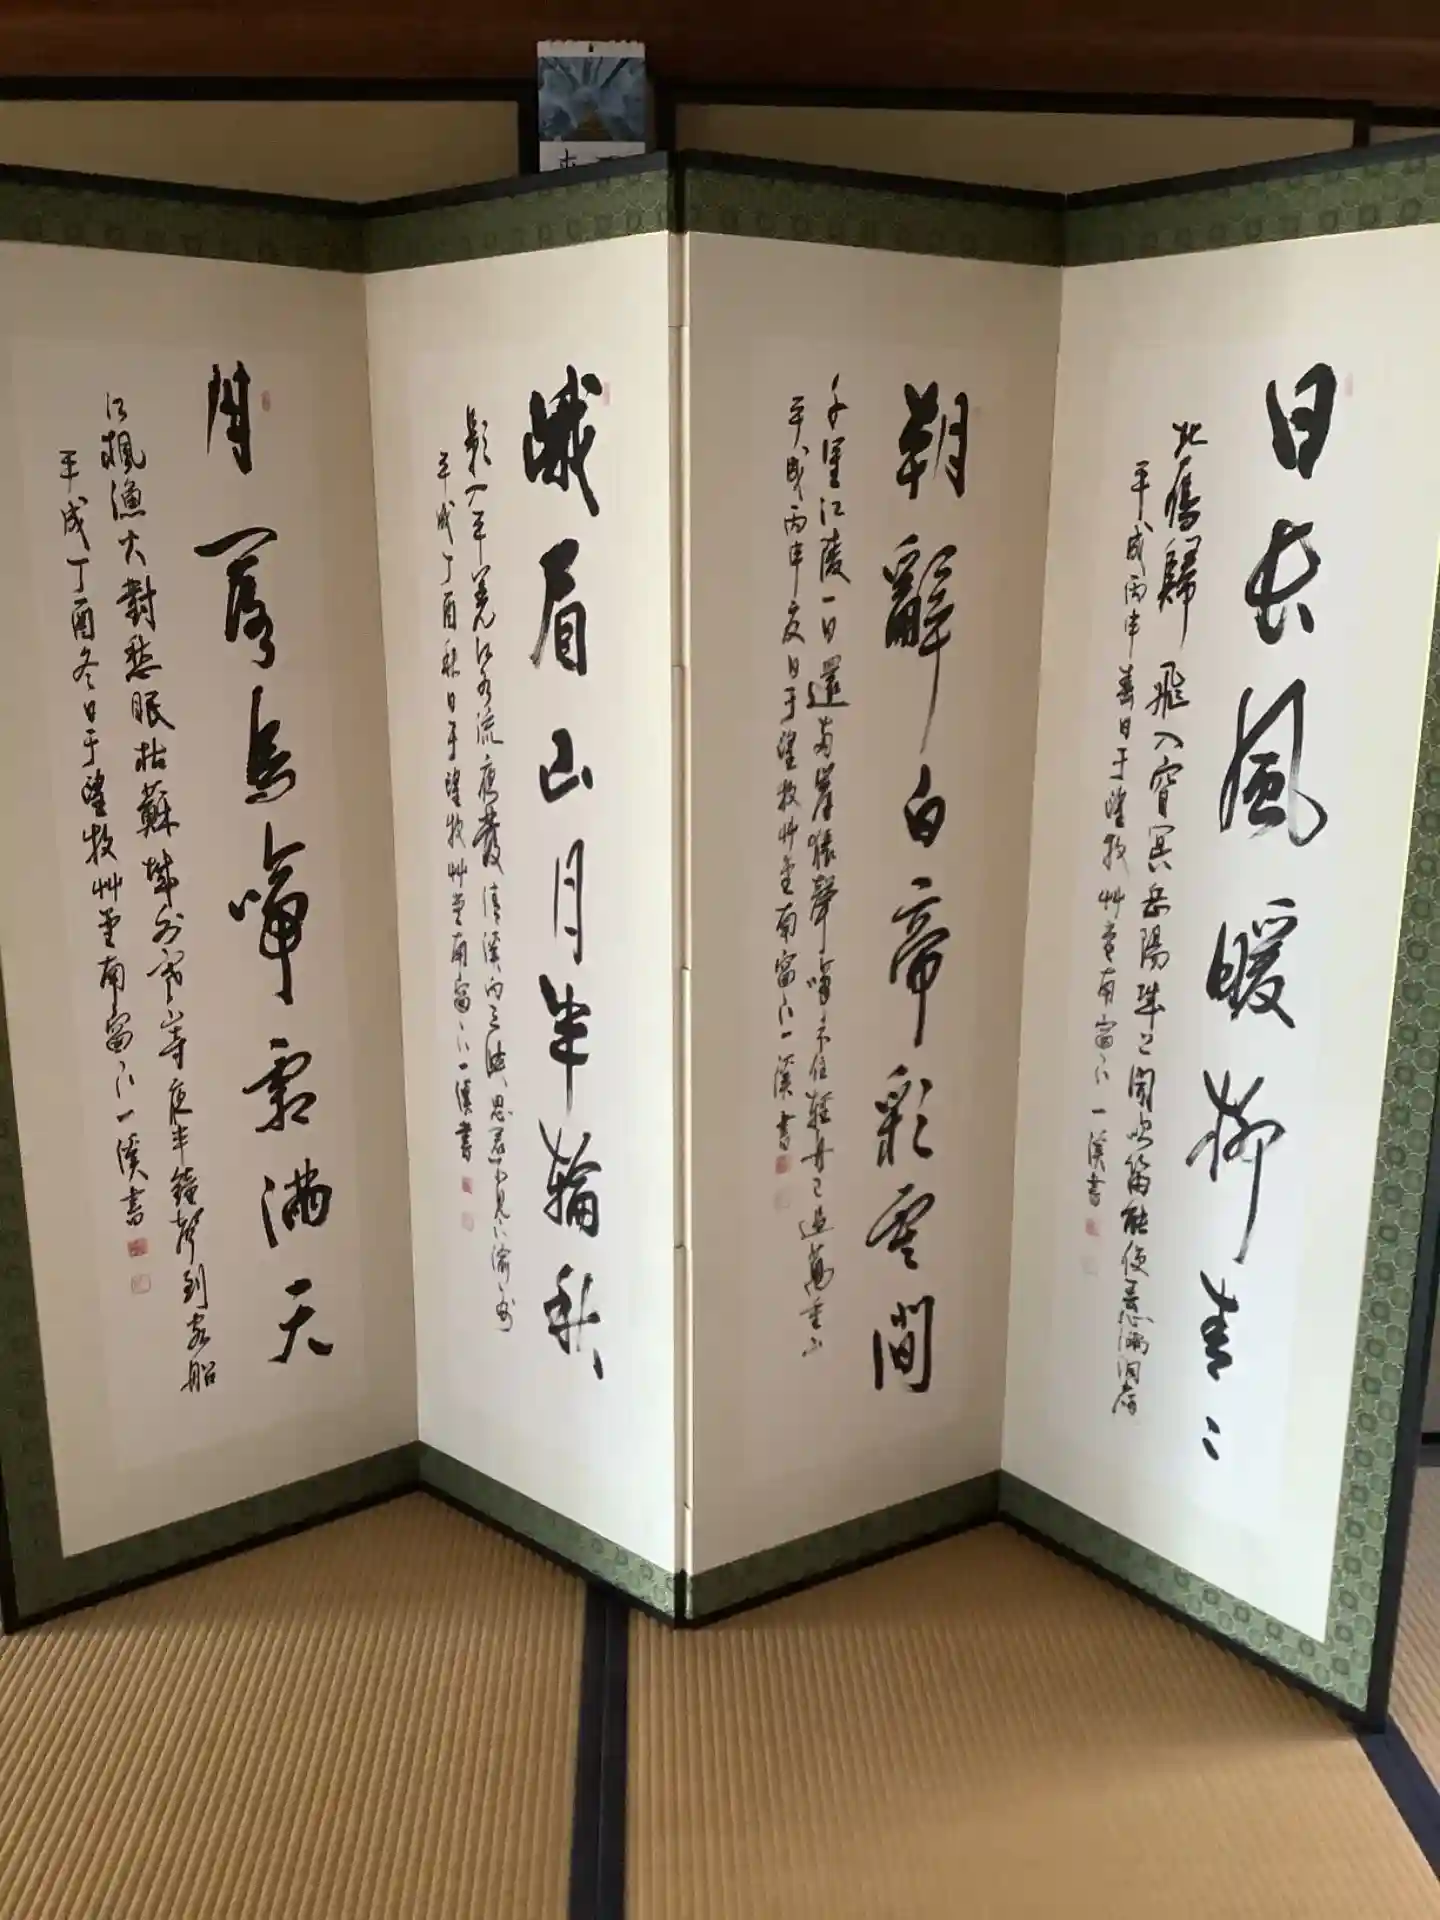 日長風暖柳青々
北雁歸飛入窅冥岳陽城上聞吹笛能使春心滿洞庭
平成丙申春日于望牧艸堂南窗下一溪書
朝辭白帝彩雲間
千里江陵一日還兩岸猿聲啼不住輕舟已過萬重山
平成丙申夏日于望牧艸堂南窗下一溪書
峨眉山月半輪秋
影入平羌江水流夜發清溪向三峽思君不見下渝州
平成丁酉秋日于望牧艸堂南窗下一溪書
月落烏啼霜滿天
江楓漁火對愁眠姑蘇城外寒山寺夜半鐘聲到客船
平成丁酉冬日于望牧艸堂南窗下一溪書